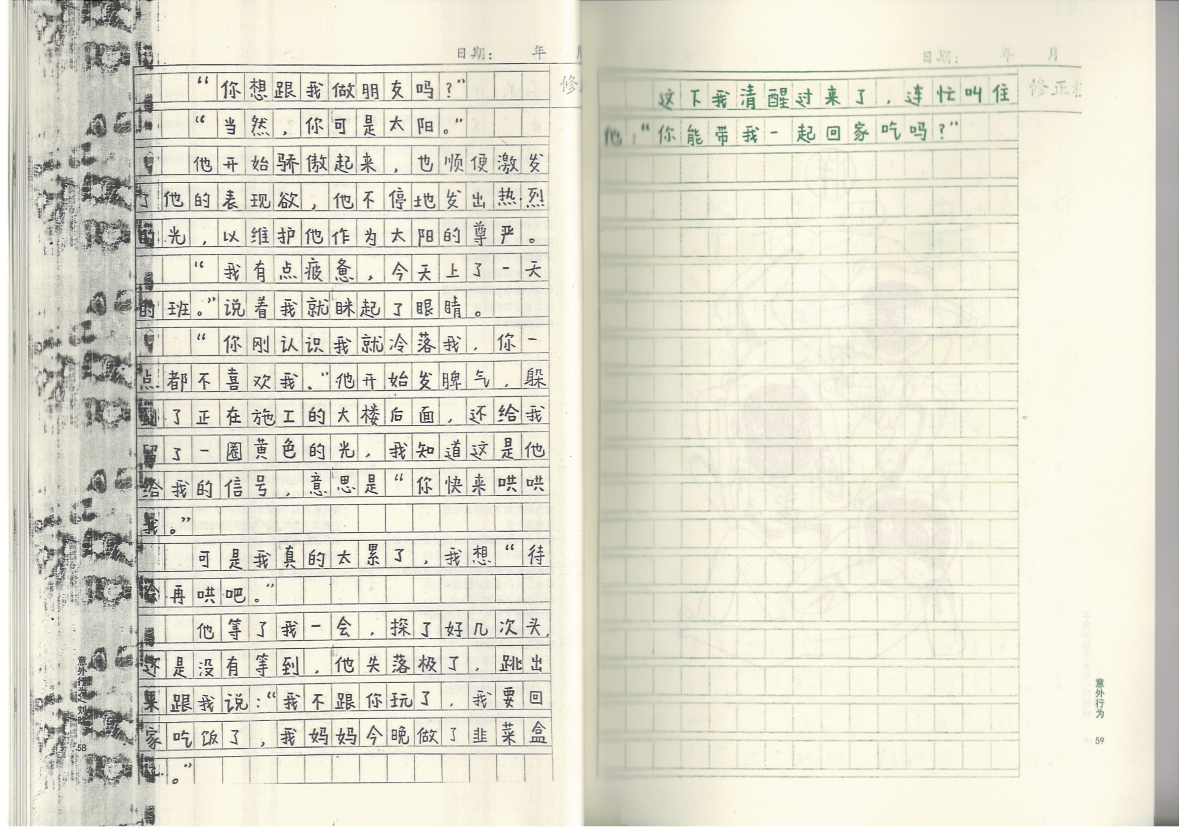 日期： 年 月
修
“你想跟我做朋友吗？”
“当然，你可是太阳。”
他开始骄傲起来，也顺便激发
了他的表现欲，他不停地发出热烈
的光，以维护他作为太阳的尊严。
“我有点疲惫，今天上了一天
的班。”说着我就眯起了眼睛。
“你刚认识我就冷落我，你一
点都不喜欢我。”他开始发脾气，躲
到了正在施工的大楼后面，还给我
留了一圈黄色的光，我知道这是他
给我的信号，意思是“你快来哄哄
我。”
可是我真的太累了，我想“待
会再哄吧。”
他等了我一会，探了好几次头，
还是没有等到，他失落极了，跳出
来跟我说：“我不跟你玩了，我要回
家吃饭了，我妈妈今晚做了韭菜盒
。”
意外行为
58
日期： 年 月
修正
这下我清醒过来了，连忙叫住
他：“你能带我一起回家吃吗？”
意外行为
59